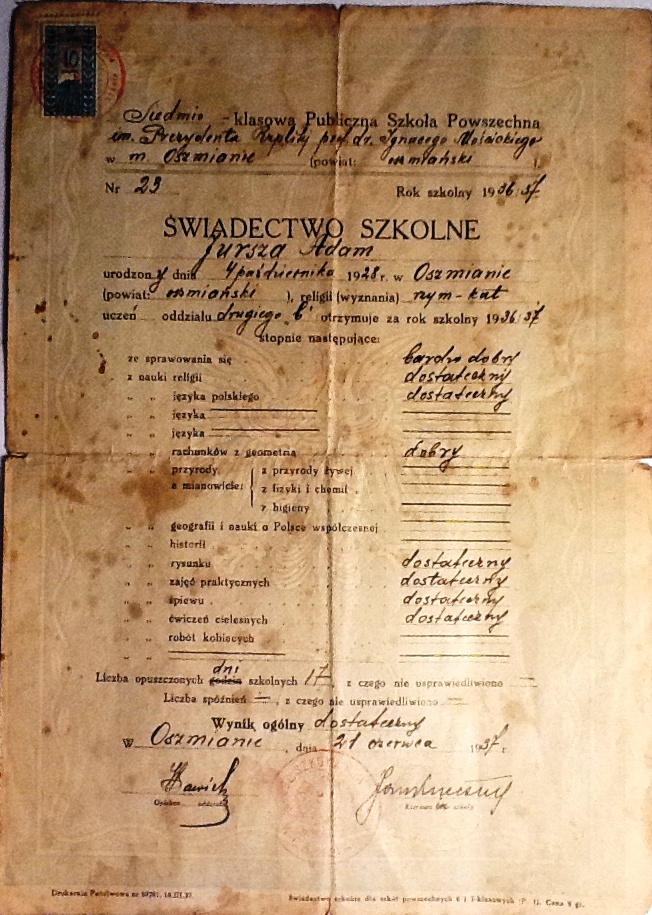 10
Siedmio - klasowa Publiczna Szkoła Powszechna
im. Prezydenta Rzplitej prof. dr. Ignacego Mościckiego
w m. Oszmianie (powiat: oszmiański )
Nr 23 Rok szkolny 1936/37
ŚWIADECTWO SZKOLNE
Jursza Adam
urodzony dnia 4 października 1928 r. w Oszmianie
(powiat: oszmiański ), religii (wyznania) rzym-kat
uczeń oddziału drugiego "b" otrzymuje za rok szkolny 1936/37
stopnie następujące:
ze sprawowania się bardzo dobry
z nauki religii dostateczny
" " języka polskiego dostateczny
" " języka
" " języka
" " rachunków z geometrią dobry
" " przyrody, z przyrody żywej
a mianowicie: z fizyki i chemii
z higieny
" " geografii i nauki o Polsce współczesnej
" " historii
" " rysunku dostateczny
" " zajęć praktycznych dostateczny
" " śpiewu dostateczny
" " ćwiczeń cielesnych dostateczny
" " robót kobiecych
Liczba opuszczonych godzin dni szkolnych 17, z czego nie usprawiedliwiono
Liczba spóźnień, z czego nie usprawiedliwiono
Wynik ogólny dostateczny
W Oszmianie, dnia 21 czerwca 1937 r.
Opiekun oddziału Kierown szkoły
Drukarnia Państwowa nr 59761. 18.III.37.
Świadectwo szkolne dla szkół powszechnych 6 i 7-klasowych (P. 1). Cena 5 gr.